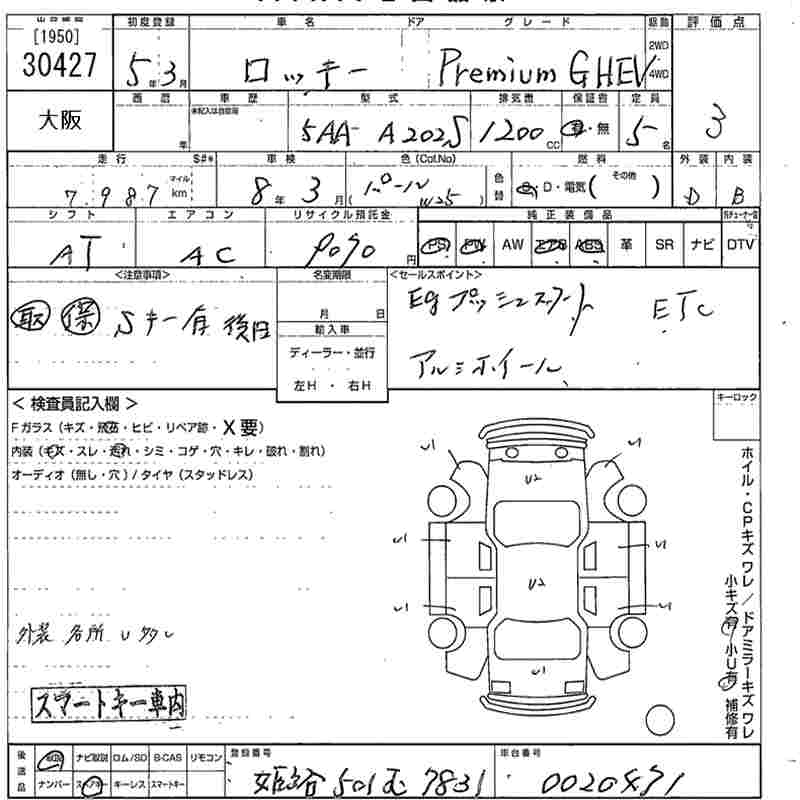 [1950]
30427
初度登録
車名
ドア
グレード
駆動
評価点
5年3月
ロッキー
Premium G HEV
2WD
4WD
大阪
西暦
車歴
型式
排気量
保証書
定員
※記入は自家用
年
5AA- A202S
1200cc
有・無
5名
3
走行
S#*
車検
色(Col.No)
色替
燃料
外装
内装
7,987
マイル
km
8年3月
パール W25
D・電気( その他 )
D
B
シフト
エアコン
リサイクル預託金
純正装備品
AT
AC
9090円
PS
PW
AW
エアB
ABS
革
SR
ナビ
DTV
<注意事項>
名変期限
<セールスポイント>
取 保 Sキー有 後日
月 日
輸入車
ディーラー・並行
左H・右H
Egプッシュスタート
ETC
アルミホイール
< 検査員記入欄 >
キーロック
Fガラス (キズ・飛石・ヒビ・リペア跡・X要)
内装 (キズ・スレ・汚れ・シミ・コゲ・穴・キレ・破れ・割れ)
オーディオ (無し・穴) / タイヤ (スタッドレス)
U1
U1
U2
U1
U1
U2
U1
U1
U1
外装 各所 U多し
スマートキー車内
ホイル・CPキズ ワレ / ドアミラーキズ ワレ
小キズ有 / 小U有 補修有
後送品
取説
ナビ取説
ロム/SD
B-CAS
リモコン
ナンバー
スペアキー
キーレス
スマートキー
登録番号
姫路 501 む 7831
車台番号
0020471